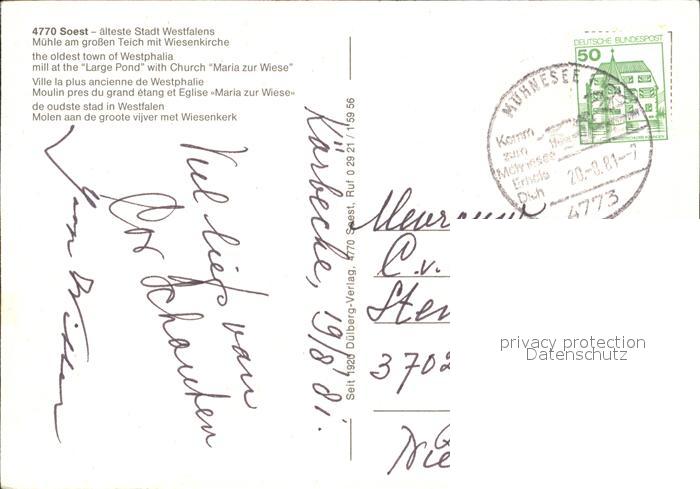 4770 Soest – älteste Stadt Westfalens
Mühle am großen Teich mit Wiesenkirche
the oldest town of Westphalia
mill at the "Large Pond" with Church "Maria zur Wiese"
Ville la plus ancienne de Westphalie
Moulin pres du grand étang et Eglise »Maria zur Wiese«
de oudste stad in Westfalen
Molen aan de groote vijver met Wiesenkerk
Körbecke, 19/8 '81.
Veel liefs van
Cor Schouten
Seit 1920 Dülberg-Verlag, 4770 Soest, Ruf 0 29 21 / 1 59 56
DEUTSCHE BUNDESPOST
50
MÖHNESEE
Komm
zum
Möhnesee
Erhole
Dich
20.-8.81-7
4773
C.v.
Ste
3702
Nie
privacy protection
Datenschutz